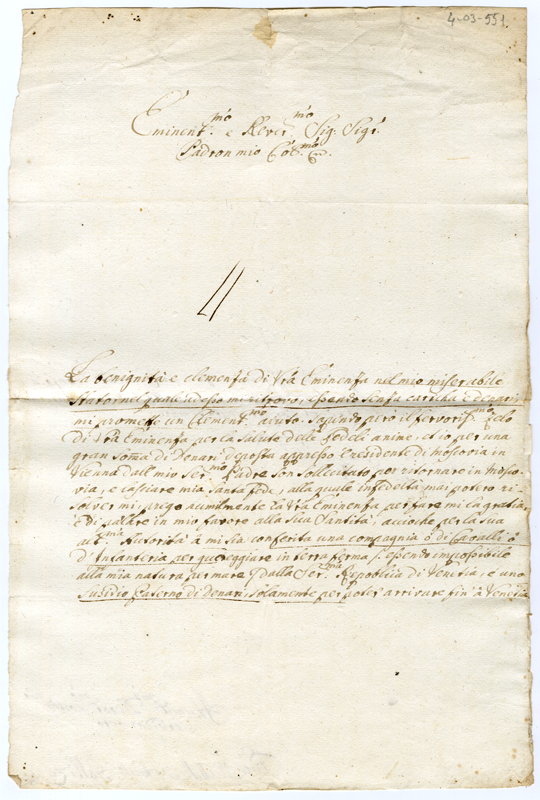 4-03-551
Eminent.mo e Rever.mo Sig: Sig.r
Padron mio Co
La benignità e clemenza di Vrâ Eminenza nel mio miserabile
stato nel quale adesso mi ritrovo, essendo senza caricha e denari,
mi prometto un Clement.mo aiuto. Sapendo però il fervoris.mo zelo
di Vrâ Eminenza per la salute dele fedeli anime, et io per una
gran soma di Denari deposta appresso il residente di Moscovia in
Vienna dall mio Ser.mo Padre son sollecitato per ritornare in Mosco-
via, e lasciare mia santa fede, alla quale infedeltà mai potero ri-
solvermi, prego a Vrâ Eminenza per fare mi la gratia
e di parlare in mio favore alla Sua Santità, accioche per la sua
Autorità à mi sia conferita una compagnia ò di Cavalli ò
d'Infanteria per guereggiare in terra ferma, essendo impossibile
alla mia natura per mare dalla Ser.ma Republica di Venetia, e uno
susidio paterno di denari, solamente per poter arrivare fin à Venetia